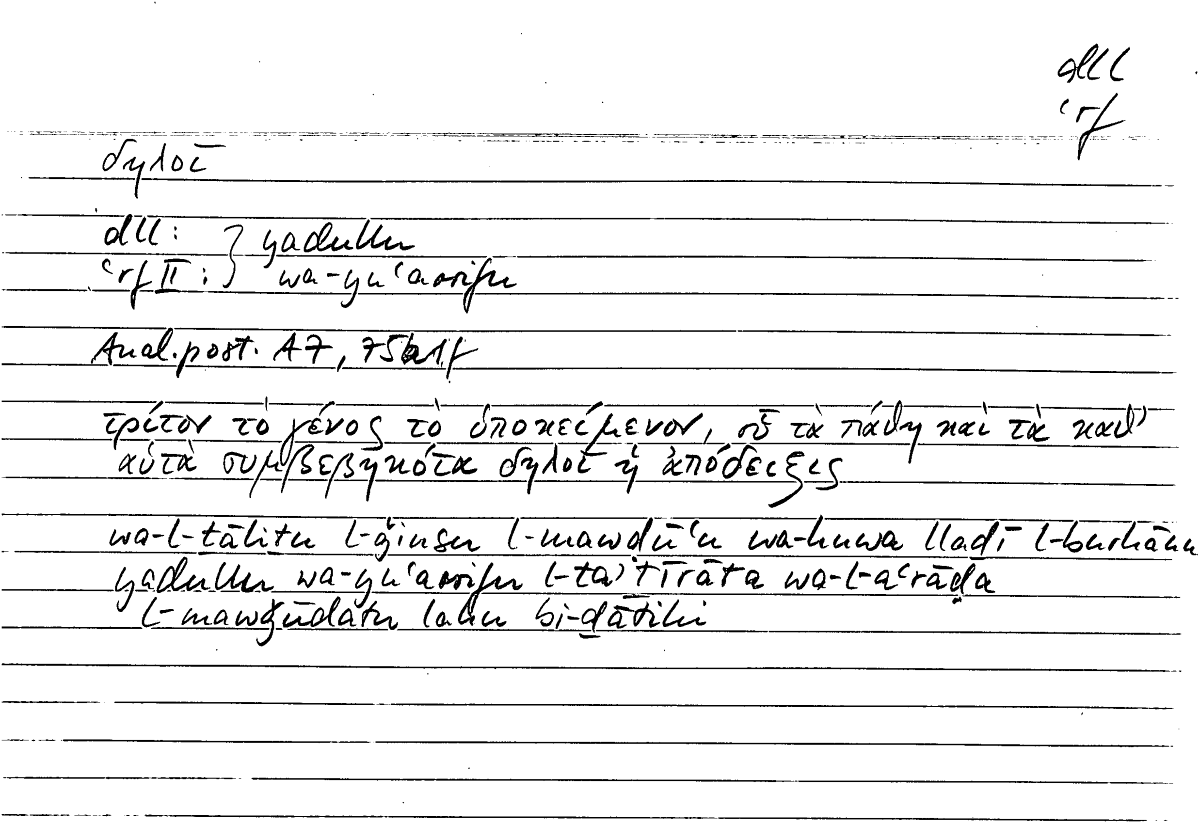 dll
ʿrf
δηλοῖ
dll: } yadullu
ʿrf II: } wa-yuʿarrifu
Anal.post. A7, 75b1f
τρίτον τὸ γένος τὸ ὑποκείμενον, οὗ τὰ πάθη καὶ τὰ καθ᾽
αὑτὰ συμβεβηκότα δηλοῖ ἡ ἀπόδειξις
wa-l-ṯāliṯu l-ǧinsu l-mawḍūʿu wa-huwa llaḏī l-burhānu
yadullu wa-yuʿarrifu l-taʾṯīrāta wa-l-aʿrāḍa
l-mawǧūdatu lahu bi-ḏātihi